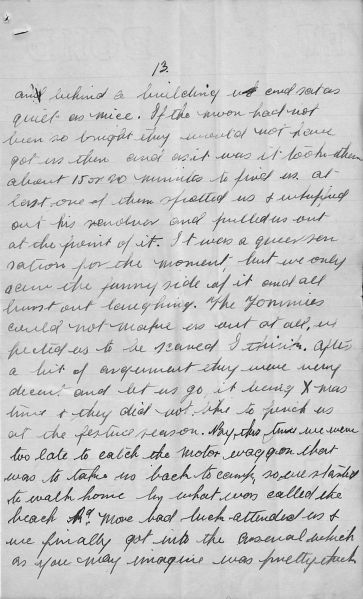 13.
and behind a building and sat as
quiet as mice. If the moon had not
been so bright they would not have
got us then and as it was it took them
about 15 or 20 minutes to find us. at
last one of them spotted us & whipped
out his revolver and pulled us out
at the point of it. It was a queer sen
sation for the moment, but we only
seen the funny side of it and all
burst out laughing. The Tommies
could not make us out at all, ex
pected us to be scared I think. After
a bit of argument they were very
decent and let us go, it being Xmas
time & they did not like to pinch us
at the festive season. By this time we were
too late to catch the motor waggon that
was to take us back to camp, so we started
to walk home by what was called the
beach Rd. More bad luck attended us &
we finally got into the arsenal which
as you may imagine was pretty